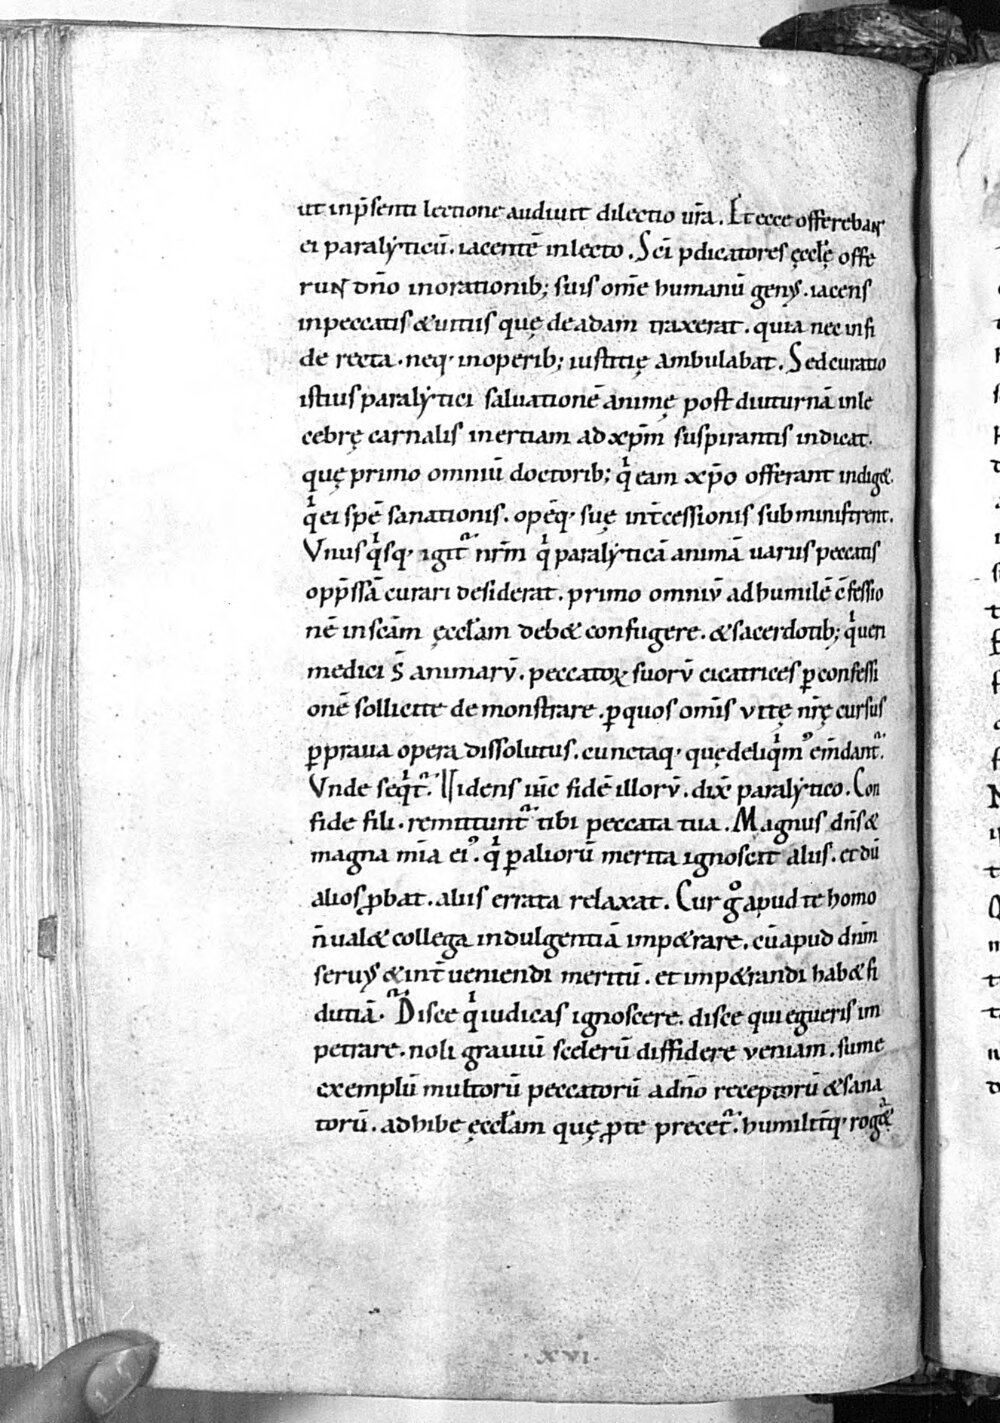 ut inp̄senti lectione audiuit dilectio ur̄a. Et ecce offerebant
ei paralẏticū. iacentē inlecto. Sc̄i p̄dicatores ęccl̄ę offe
runt dn̄o inorationib; suis om̄e humanū genus. iacens
inpeccatis &uitiis quę deadam traxerat. quia nec infi
de recta. neq· inoperib; iustitię ambulabat. Sedcuratio
istius paralẏtici saluationē animę post diuturnā inle
cebrę carnalis inertiam ad xp̄m suspirantis indicat.
quę primo omniū doctorib; qͥ eam xp̄o offerant indig&.
qͥ ei spē sanationis. opēq· suę int̄cessionis subministrent.
Vnus qͥsq· igit᷑ nr̄m qͥ paralẏticā animā uariis peccatis
opp̄ssā curari desiderat. primo omniū adhumilē c̄fessio
nē insc̄am ęccl̄am deb& confugere. &sacerdotib; qͥ ueri
medici s̄ animarū. peccatoꝝ suorū cicatrices ꝑconfessi
onē sollicite demonstrare. ꝑquos om̄is vitę nr̄ę cursus
ꝑpraua opera dissolutus. cunctaq· quędeliqͥmꝰ em̄dant᷑.
Vnde seqͥt᷑. Videns ih̄c fidē illorū. dix̄ paralẏtico. Con
fide fili. remittunt᷑ tibi peccata tua. Magnus dn̄s &
magna mīa eiꝰ. qͥ ꝑaliorū merita ignoscit aliis. et dū
alios ꝓbat. aliis errata relaxat. Cur gͦ apud te homo
n̄ual& collega indulgentiā imp&rare. cū apud dn̄m
seruus &int̄ueniendi meritū. et imp&randi hab& fi
duciā. Disce qͥ iudicas ignoscere. disce qui eg̅ueris im
petrare. noli grauiū scelerū diffidere veniam. sume
exemplū multorū peccatorū adn̄o receptorū &sana
torū. adhibe ęccl̄am quę ꝓte precet᷑. humilit̄q· rog&᷑
·XVI·